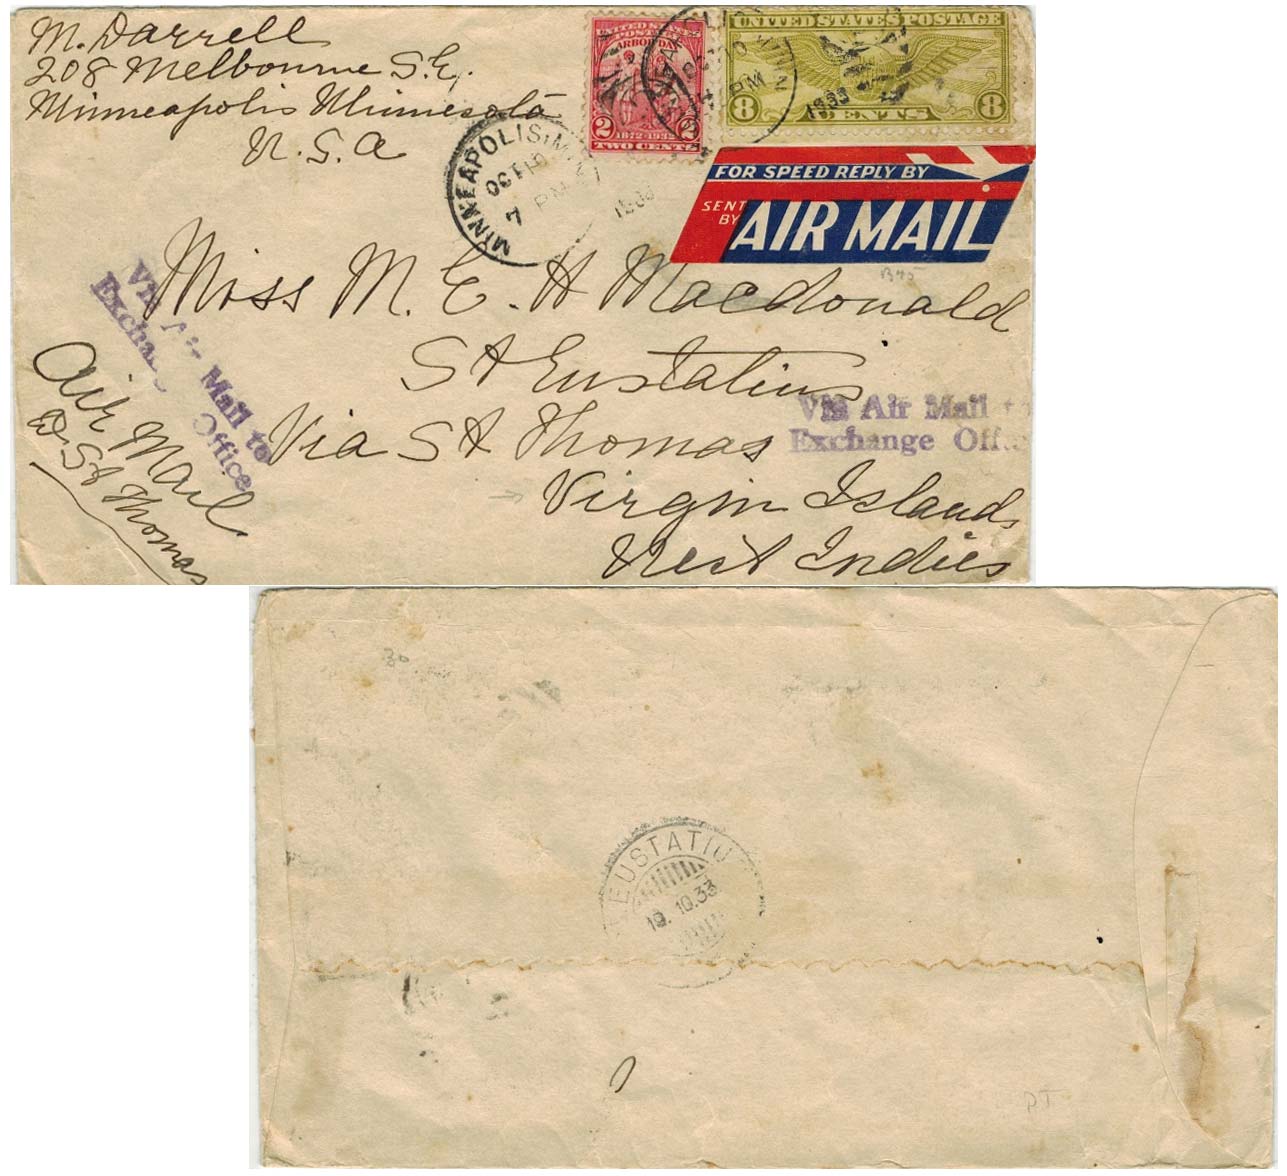 M. Darrell
208 Melbourne S.E.
Minneapolis Minnesota
U.S.A
UNITED STATES POSTAGE
ARBOR DAY
2 2
1872-1932
TWO CENTS
UNITED STATES POSTAGE
8 CENTS 8
1933
PM
MINNEAPOLIS, MINN.
OCT 10
7 PM
FOR SPEED REPLY BY
SENT BY
AIR MAIL
B45
Miss M. E. H Macdonald
St Eustatius
Via St Thomas
Virgin Islands
West Indies
Via Air Mail to
Exchange Office
Via Air Mail to
Exchange Offic
Air Mail
to St Thomas
30
EUSTATIU
19.10.33
DT